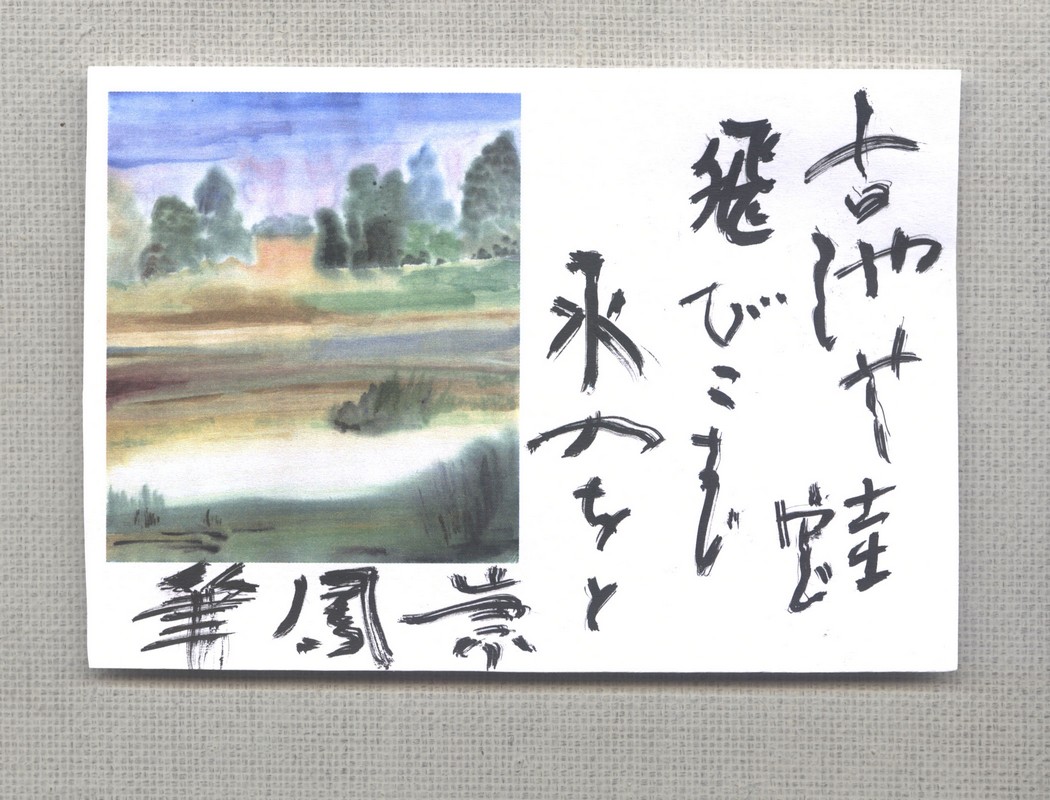 古池や蛙
飛びこむ
水のをと
筆風景